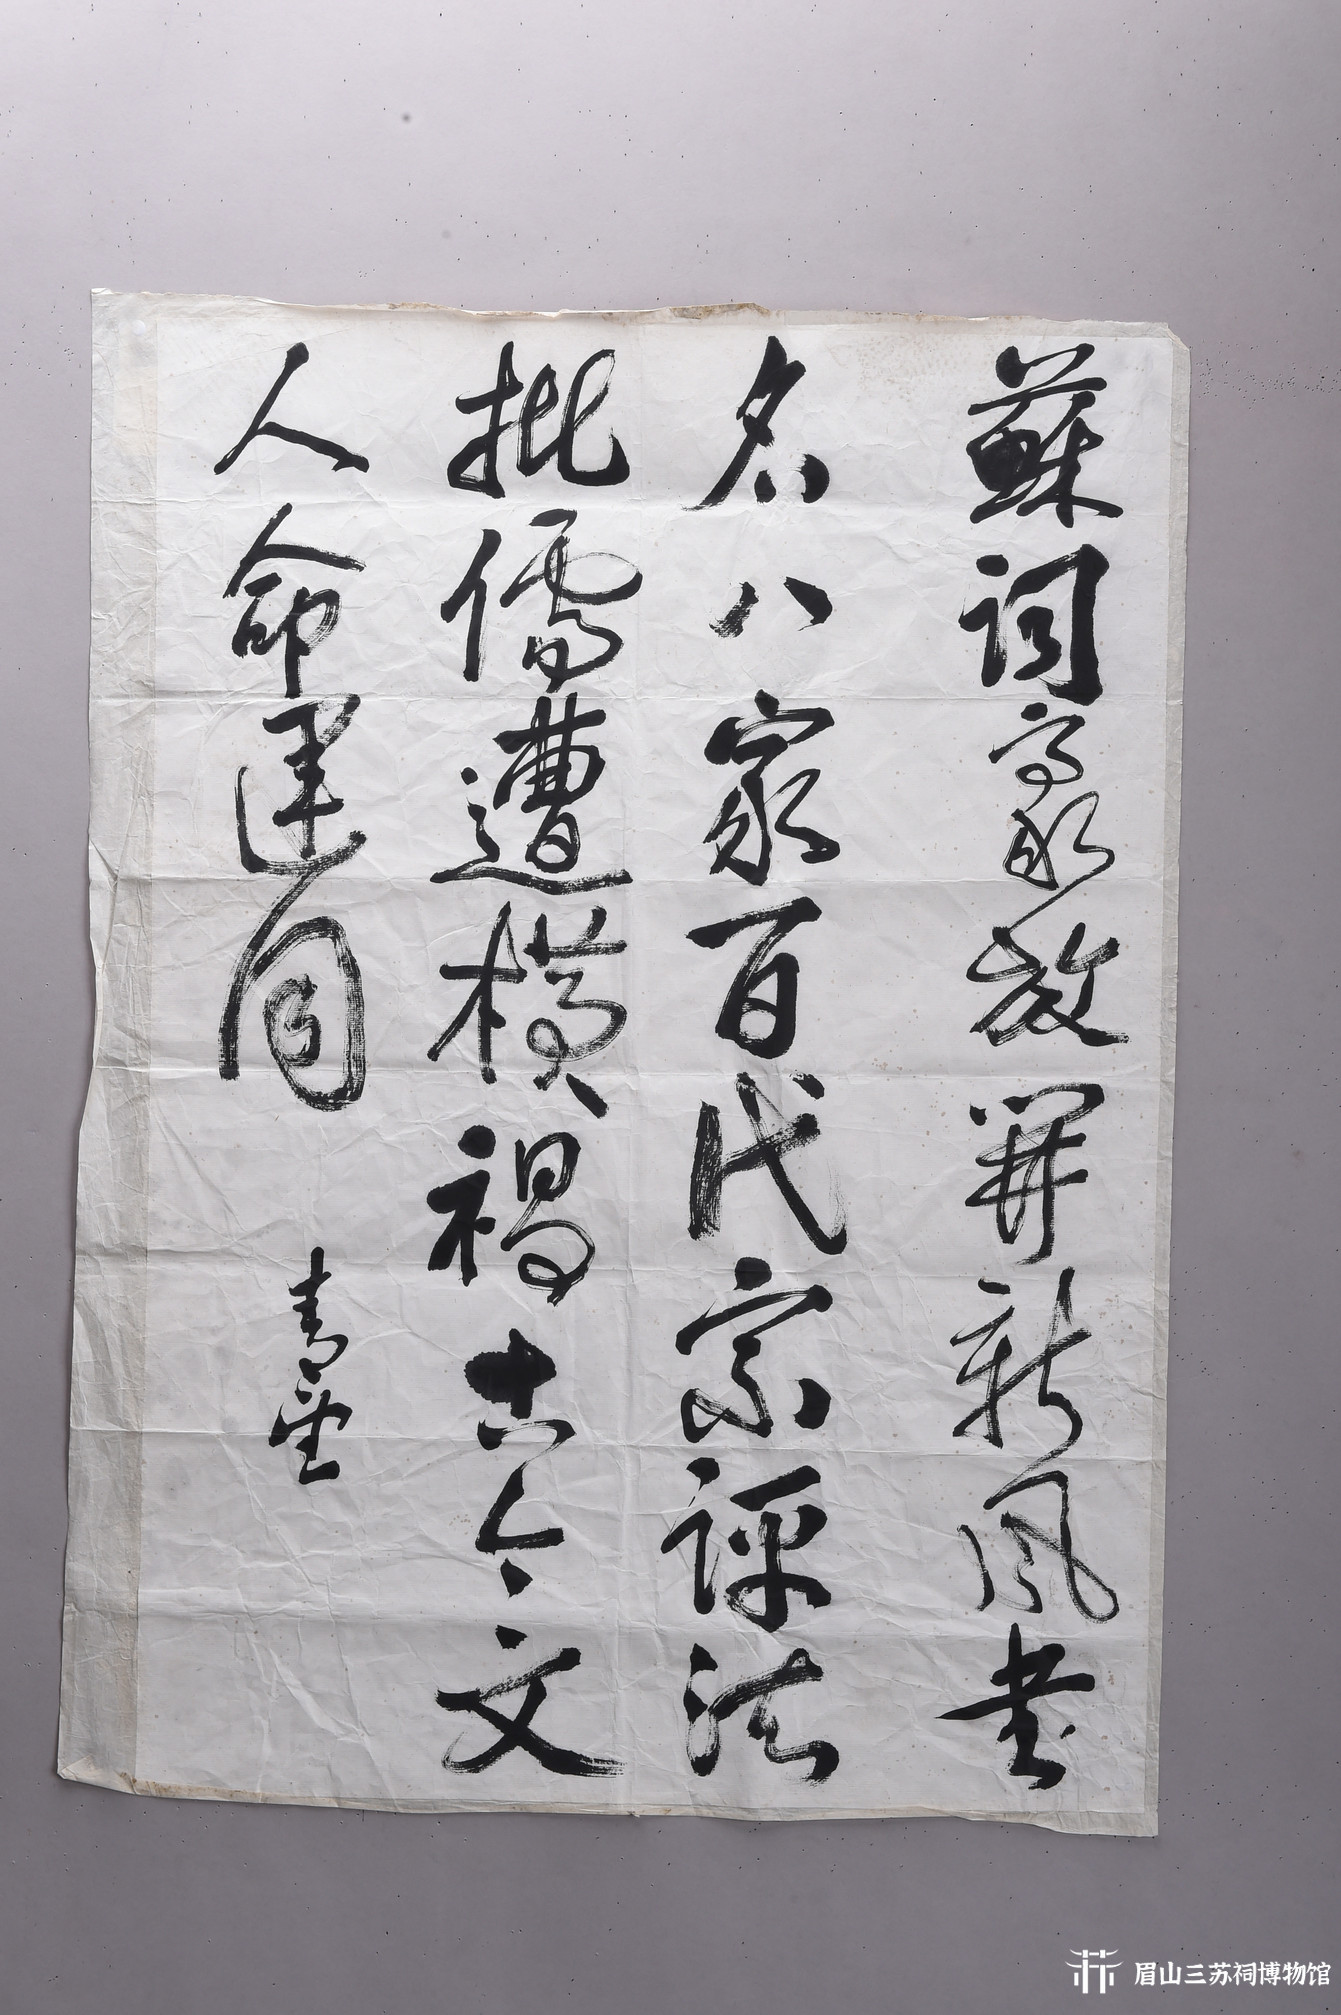 蘇詞豪放開新風書
名八家百代宗評法
批儒遭橫禍古今文
人命運同
青
眉山三苏祠博物馆